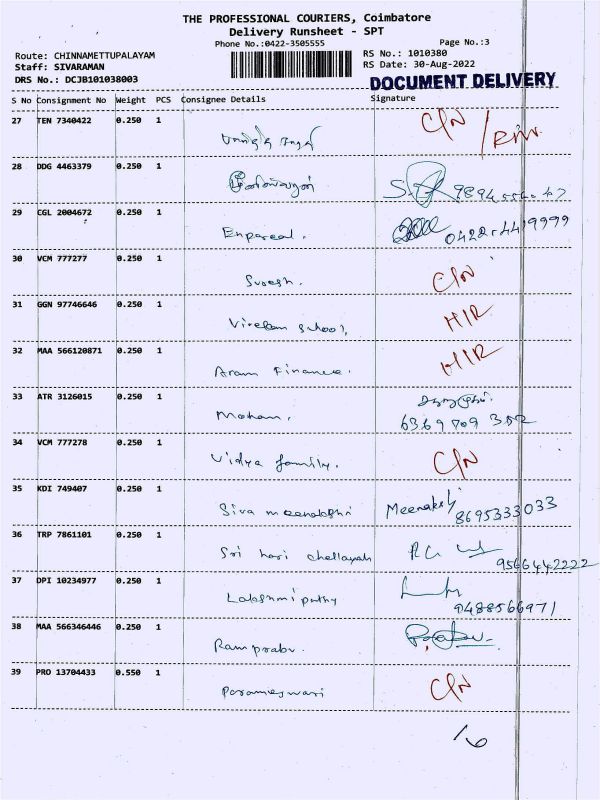 THE PROFESSIONAL COURIERS, Coimbatore
Delivery Runsheet - SPT
Phone No.:0422-3505555
Page No.:3
Route: CHINNAMETTUPALAYAM
RS No.: 1010380
Staff: SIVARAMAN
RS Date: 30-Aug-2022
DRS No.: DCJB101038003
DOCUMENT DELIVERY
S No Consignment No Weight PCS Consignee Details Signature
27 TEN 7340422 0.250 1 C/N
28 DDG 4463379 0.250 1
29 CGL 2004672 0.250 1 0422-4419999
30 VCM 777277 0.250 1 Suresh. C/N
31 GGN 97746646 0.250 1 school,
32 MAA 566120871 0.250 1 Aram Finance.
33 ATR 3126015 0.250 1 Mohan.
34 VCM 777278 0.250 1 Vidya family. C/N
35 KDI 749407 0.250 1 Siva meenakshi Meenakshi 8695333033
36 TRP 7861101 0.250 1 Sri hari chellayah 9566442222
37 DPI 10234977 0.250 1 Lakshmipathy
38 MAA 566346446 0.250 1 Ramprabu.
39 PRO 13704433 0.550 1 Parameswari C/N